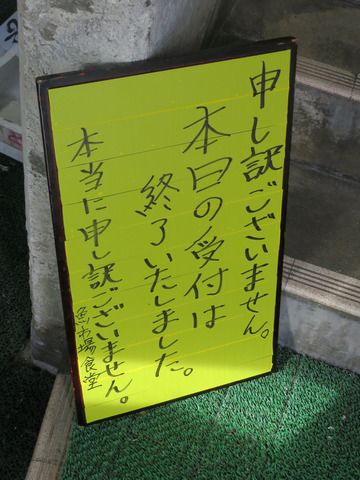 申し訳ございません。
本日の受付は
終了いたしました。
本当に申し訳ございません。
魚市場食堂